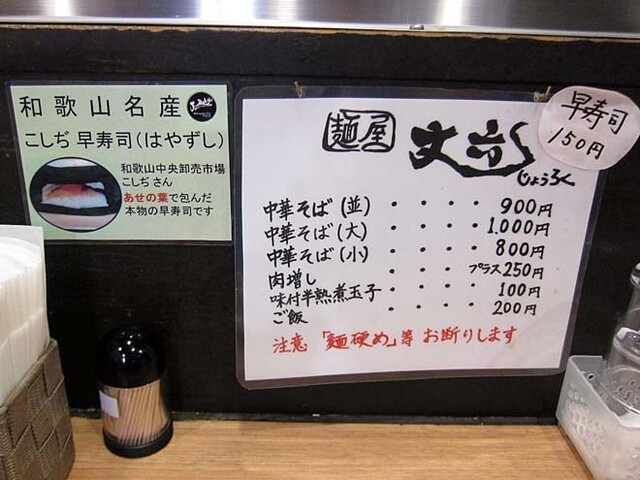 和歌山名産
こしぢ 早寿司(はやずし)
和歌山中央卸売市場
こしぢさん
あせの葉で包んだ
本物の早寿司です
麺屋 丈六
じょうろく
中華そば(並)・・・・900円
中華そば(大)・・・・1.000円
中華そば(小)・・・・800円
肉増し・・・・プラス250円
味付半熟煮玉子・・・・100円
ご飯・・・・200円
注意 「麺硬め」等 お断りします
早寿司
150円